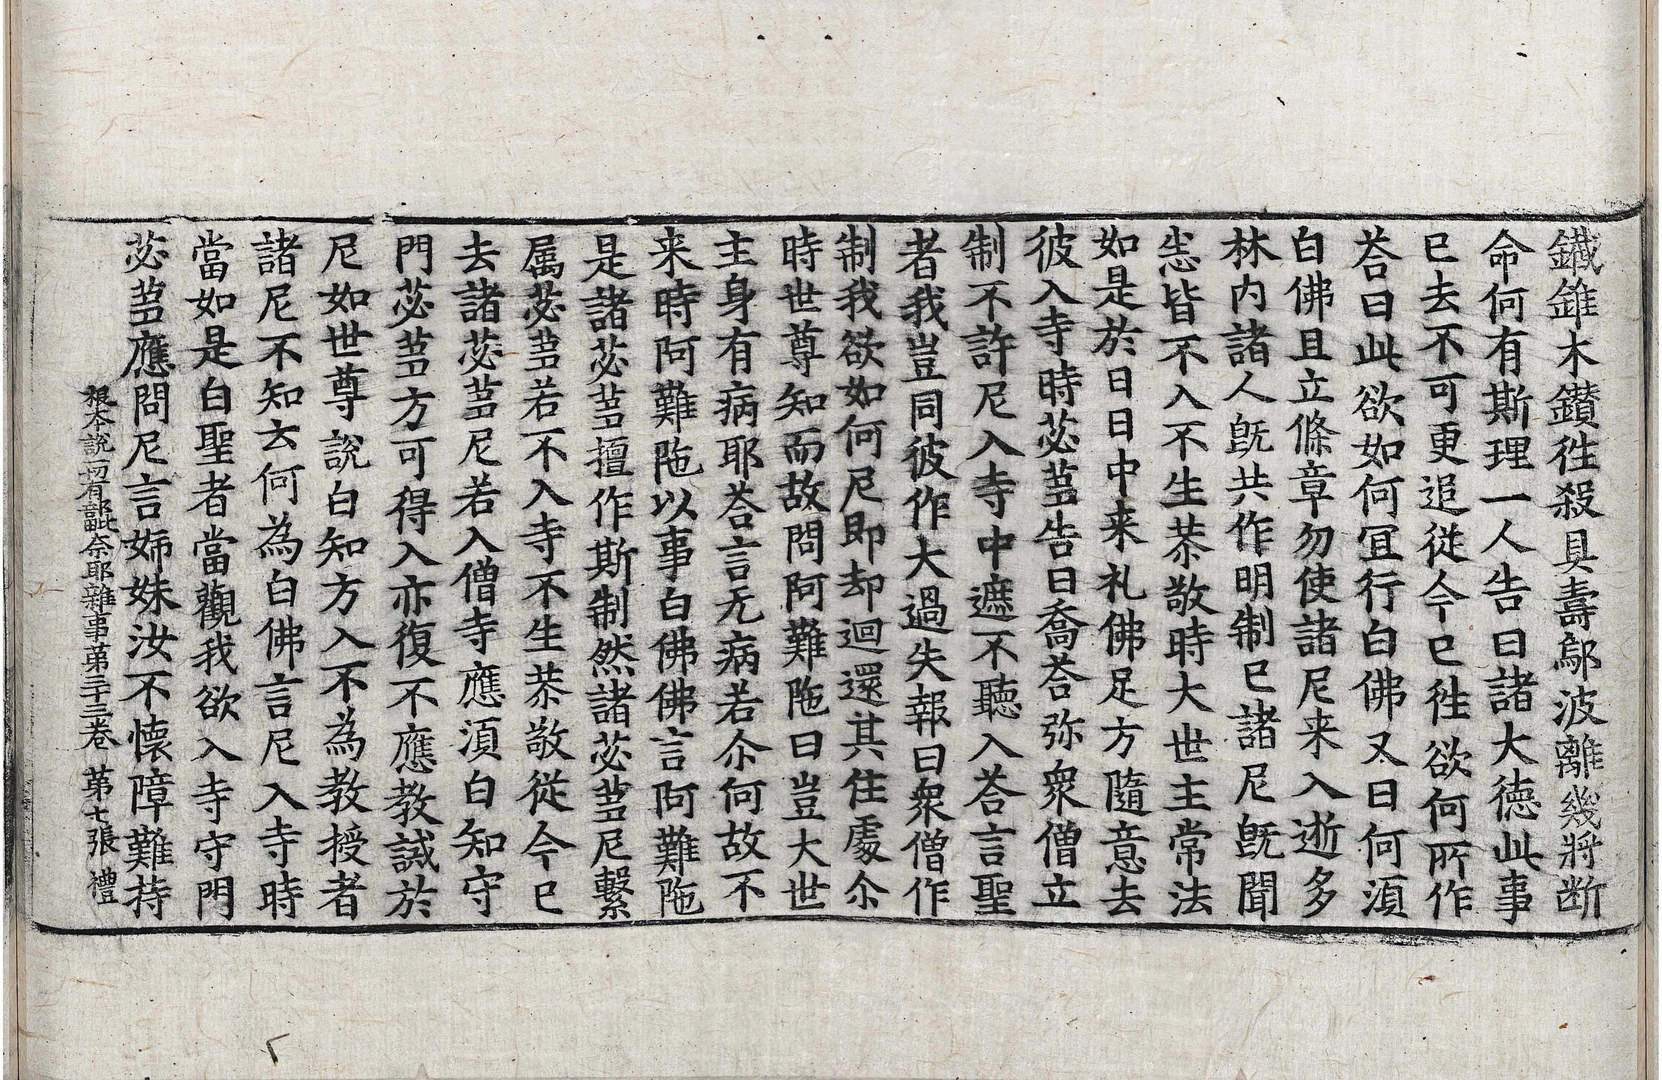 鐵錐木鑽徃殺具壽鄔波離幾將断
命何有斯理一人告曰諸大德此事
已去不可更追從今已徃欲何所作
荅曰此欲如何冝行白佛又曰何湏
白佛且立條章勿使諸尼来入逝多
林内諸人旣共作明制已諸尼旣聞
悉皆不入不生恭敬時大世主常法
如是於日日中来礼佛足方隨意去
彼入寺時苾蒭告曰喬荅弥衆僧立
制不許尼入寺中遮不聽入荅言聖
者我豈同彼作大過失報曰衆僧作
制我欲如何尼即却迴還其住處尒
時世尊知而故問阿難陁曰豈大世
主身有病耶荅言无病若尒何故不
来時阿難陁以事白佛佛言阿難陁
是諸苾蒭擅作斯制然諸苾蒭尼繫
属苾蒭若不入寺不生恭敬從今已
去諸苾蒭尼若入僧寺應湏白知守
門苾蒭方可得入亦復不應教誡於
尼如世尊說白知方入不為教授者
諸尼不知云何為白佛言尼入寺時
當如是白聖者當觀我欲入寺守門
苾蒭應問尼言姉妹汝不懐障難持
根本說一切有部毗奈耶雜事第三十三卷　第七張　禮